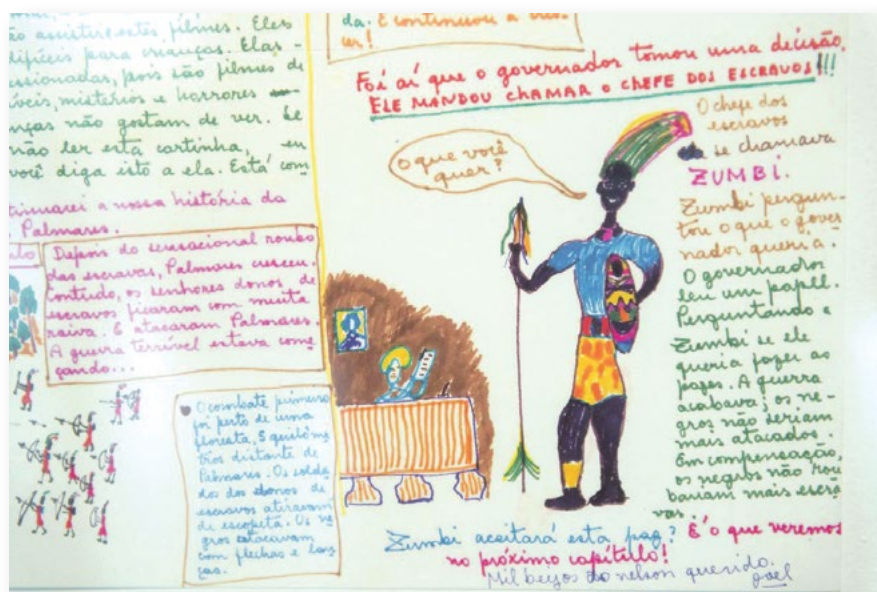 ão assistir estes filmes. Eles
difíceis para crianças. Elas -
essionadas, pois são filmes de
veis, mistérios e horrores
nças não gostam de ver. Se
não ler esta cartinha, eu
você diga isto a ela. Está com
tinuarei a nossa história da
Palmares.
Depois do sensacional roubo
das escravas, Palmares cresceu.
Contudo, os senhores donos de
escravos ficaram com muita
raiva. E atacaram Palmares.
A guerra terrível estava come
çando...
O combate primeiro
foi perto de uma
floresta, 5 quilôme
tros distante de
Palmares. Os solda
dos dos donos de
escravos atiravam
de escopeta. Os ne
gros atacavam
com flechas e lan
ças.
da. E continuou a cres-
cer!
Foi aí que o governador tomou uma decisão.
ELE MANDOU CHAMAR O CHEFE DOS ESCRAVOS!!!
O que você
quer?
O chefe dos
escravos
se chamava
ZUMBÍ.
Zumbi pergun-
tou o que o gover
nador queria.
O governador
leu um papel.
Perguntando a
Zumbi se ele
queria fazer as
pazes. A guerra
acabava; os ne-
gros não seriam
mais atacados.
Em compensação,
os negros não rou
bariam mais escra
vas.
Zumbi aceitará esta paz? É o que veremos
no próximo capítulo!
Mil beijos do nelson querido.